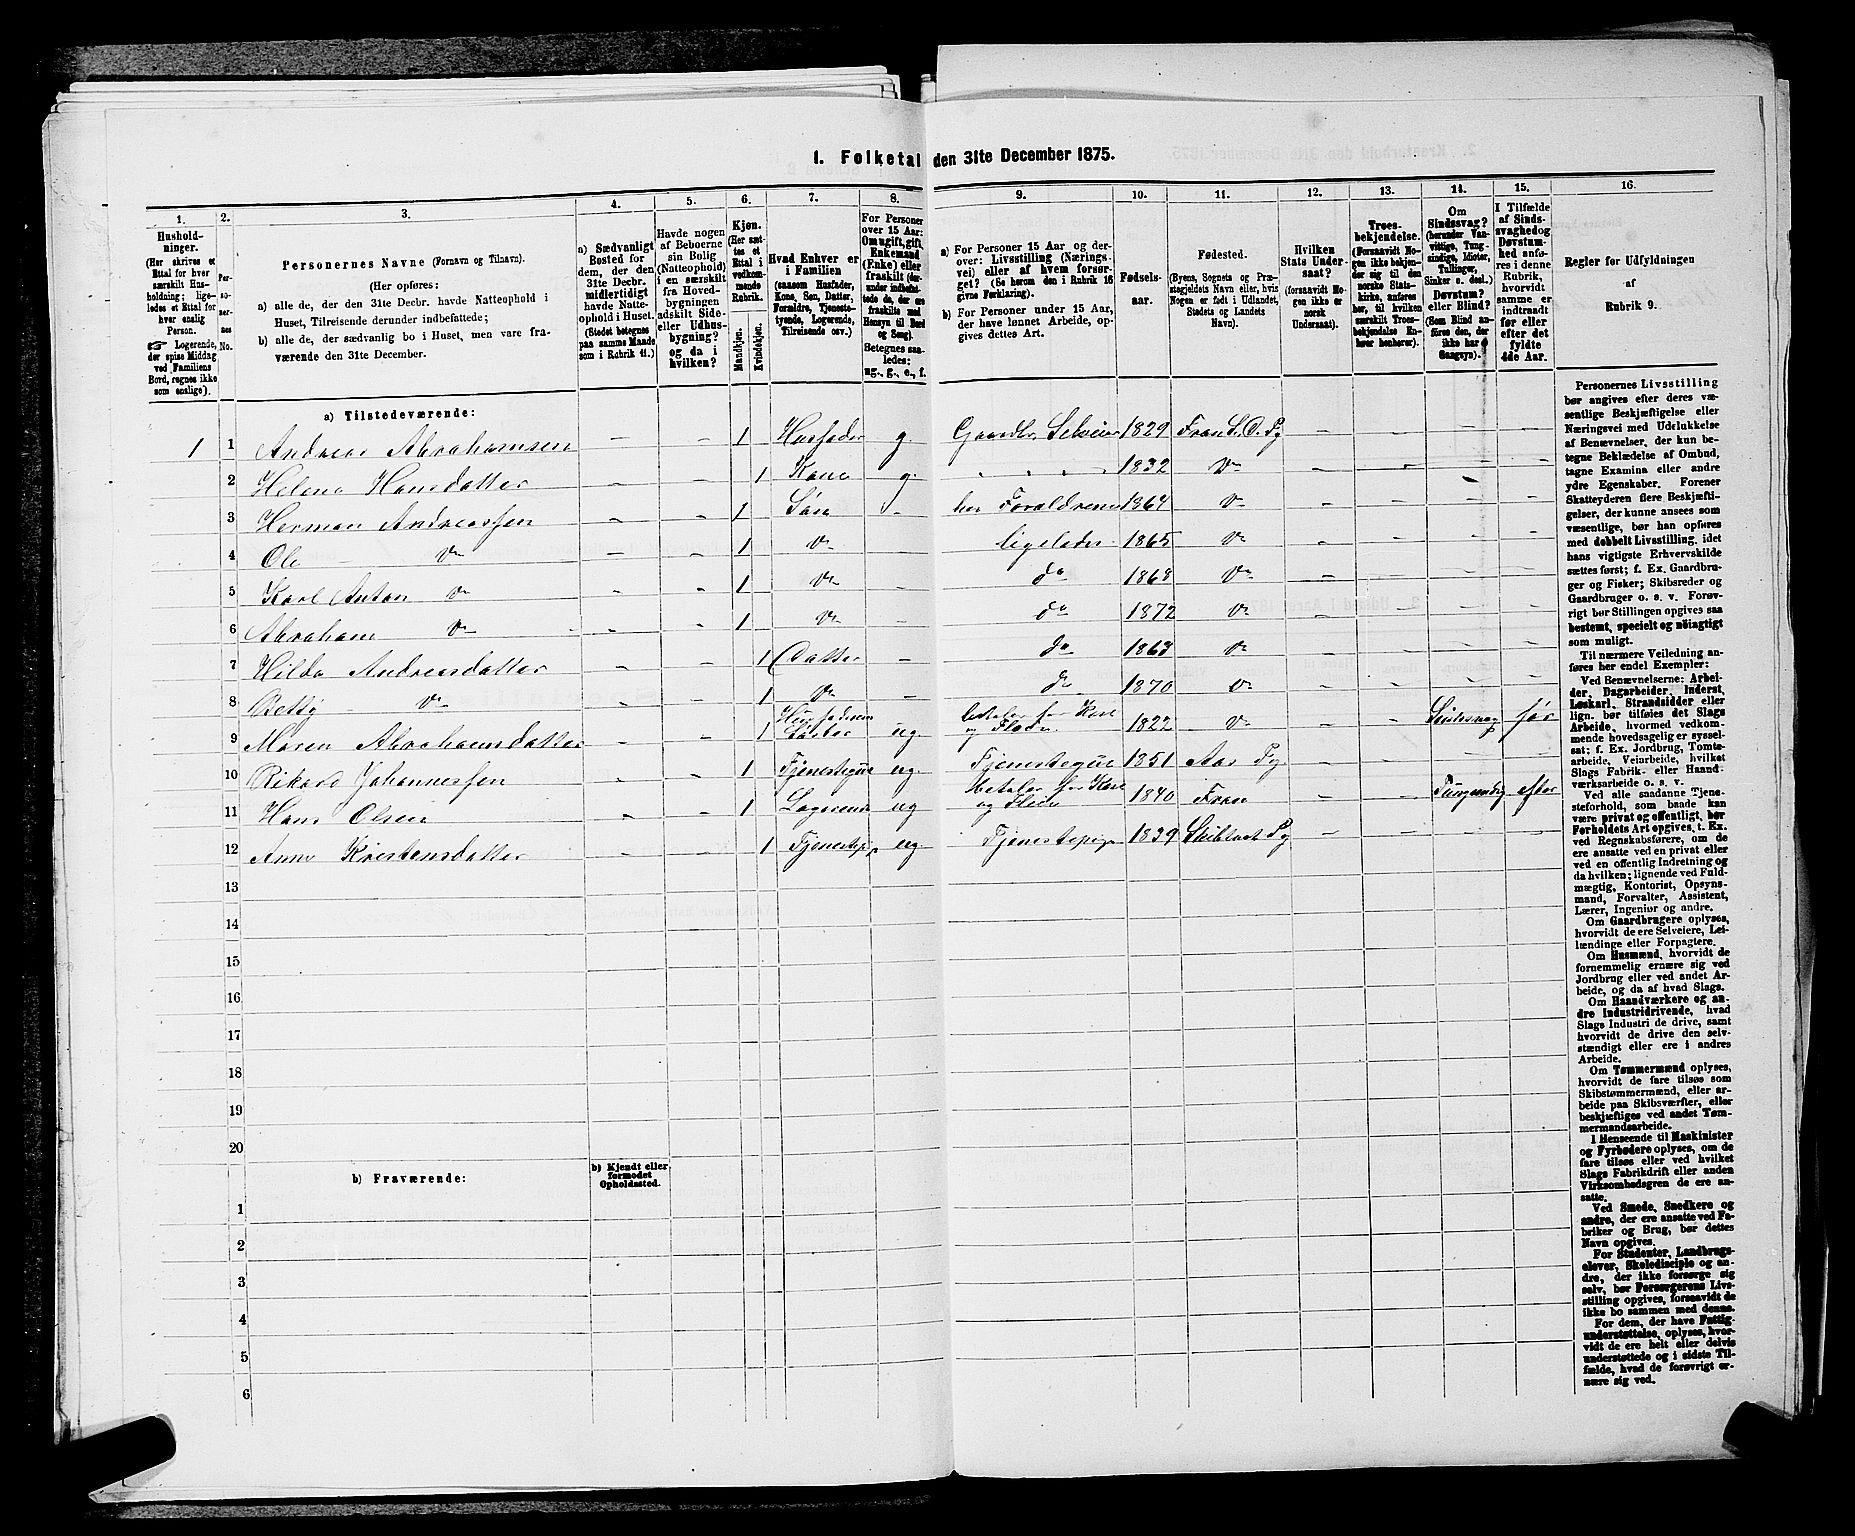 1. Folketal den 31te December 1875.
1. 2. 3. 4. 5. 6. 7. 8. 9. 10. 11. 12. 13. 14. 15. 16.
Hushold-
ninger.
(Her skrives et
Ettal for hver
særskilt Hus-
holdning; lige-
ledes et Ettal for
hver enslig
Person.
☞ Logerende,
der spise Middag
ved Familiens
Bord, regnes ikke
som enslige).
Per-
so-
ner-
nes
No.
Personernes Navne (Fornavn og Tilnavn).
(Her opføres:
a) alle de, der den 31te Decbr. havde Natteophold i
Huset, Tilreisende derunder indbefattede;
b) alle de, der sædvanlig bo i Huset, men vare fra-
værende den 31te December.
a) Sædvanligt
Bosted for
dem, der den
31te Decbr.
midlertidigt
havde Natte-
ophold i Huset.
(Stedet betegnes
paa samme Maade
som i Rubrik 11.)
Havde nogen
af Beboerne
sin Bolig
(Natteophold)
i en særskilt
fra Hoved-
bygningen
adskilt Side-
eller Udhus-
bygning?
og da i
hvilken?
Kjøn.
(Her sæt-
tes et
Ettal i
vedkom-
mende
Rubrik.
Mandkjøn.
Kvindekjøn.
Hvad Enhver er
i Familien
(saasom Husfader,
Kone, Søn, Datter,
Forældre, Tjeneste-
tyende, Logerende,
Tilreisende osv.)
For Personer
over 15 Aar:
Om ugift, gift,
Enkemand
(Enke) eller
fraskilt (der-
under indbefat-
tede de, der ere
fraskilte med
Hensyn til Bord
og Seng).
Betegnes saa-
ledes:
ug., g., e., f.
a) For Personer 15 Aar og der-
over: Livsstilling (Nærings-
vei) eller af hvem forsør-
get? (Se herom den i Rubrik 16
givne Forklaring).
b) For Personer under 15 Aar,
der have lønnet Arbeide, op-
gives dettes Art.
Fødsels-
aar.
Fødested.
(Byens, Sognets og Præ-
stegjeldets Navn eller, hvis
Nogen er født i Udlandet,
Stedets og Landets
Navn).
Hvilken
Stats Under-
saat?
(forsaavidt No-
gen ikke er
norsk
Undersaat).
Troes-
bekjendelse.
(Forsaavidt No-
gen ikke bekjen-
der sig til den
norske Stats-
kirke, anføres
her, til hvilken
særskilt Troes-
bekjendelse En-
hver henhører).
Om
Sindssvag?
(herunder Van-
vittige, Tung-
sindige, Idioter,
Tullinger,
Sinker o. desl.)
Døvstum?
eller Blind?
(Som Blind an-
føres den, der
ikke har
Gangsyn).
I Tilfælde
af Sinds-
svaghed og
Døvstum-
hed anfø-
res i denne
Rubrik,
hvorvidt
samme er
indtraadt
før eller
efter det
fyldte
4de Aar.
Regler for Udfyldningen
af
Rubrik 9.
a) Tilstedeværende:
1 1 Andreas Abrahamsen – - 1 Husfader g. Gaardbr. Selveier 1829 Fran S. O. Pg
2 Helene Hansdatter - - 1 Kone g. „ „ „ 1832 Do – – – –
3 Herman Andreassen - - 1 Søn - hos Forældrene 1864 Do
4 Ole – Do – - 1 Do – ligeledes 1865 Do
5 Karl Anton Do - - 1 Do – do 1868 Do
6 Abraham Do - - 1 Do – do 1872 Do
7 Hilda Andreasdatter - - 1 Datter – do 1863 Do
8 Betty – Do - - 1 Do – do 1870 Do
9 Maren Abrahamsdatter - - 1 Husfaderens Søster ug. betaler for Kost og Pleie 1822 Do – – Sindssvag før
10 Rikard Johannessen - - 1 Tjenestegut ug. Tjenestegut 1851 Aas Pg
11 Hans Olsen - - 1 Logerende ug betaler for Kost og Pleie 1840 Fran – – Tungsindig efter
12 Anne Kristensdatter - - 1 Tjenestepige ug. Tjenestepige 1839 Skibtvet Pg
13
14
15
16
17
18
19
20
b) Fraværende:
b) Kjendt eller
formodet
Opholdssted.
1
2
3
4
5
6
Personernes Livsstilling
bør angives efter deres væ-
sentlige Beskjæftigelse eller
Næringsvei med Udelukkelse
af Benævnelser, der kun be-
tegne Beklædelse af Ombud,
tagne Examina eller andre
ydre Egenskaber. Forener
Skatteyderen flere Beskjæfti-
gelser, der kunne ansees som
væsentlige, bør han opføres
med dobbelt Livsstilling, idet
hans vigtigste Erhvervskilde
sættes først; f. Ex. Gaardbru-
ger og Fisker; Skibsreder og
Gaardbruger o. s. v. Forøv-
rigt bør Stillingen opgives saa
bestemt, specielt og nøiagtigt
som muligt.
Til nærmere Veiledning an-
føres her endel Exempler:
Ved Benævnelserne: Arbei-
der, Dagarbeider, Inderst,
Løskarl, Strandsidder eller
lign. bør tilføies det Slags
Arbeide, hvormed vedkom-
mende hovedsagelig er syssel-
sat; f. Ex. Jordbrug, Tomte-
arbeide, Veiarbeide, hvilket
Slags Fabrik- eller Haand-
værksarbeide o. s. v.
Ved alle saadanne Tjene-
steforhold, som baade kan
være privat og offentligt, bør
Forholdets Art opgives, t. Ex.
ved Regnskabsførere, om de
ere ansatte ved en privat eller
ved en offentlig Indretning og
da hvilken; lignende ved Fuld-
mægtig, Kontorist, Opsyns-
mand, Forvalter, Assistent,
Lærer, Ingeniør og andre.
Om Gaardbrugere oplyses,
hvorvidt de ere Selveiere, Lei-
lændinge eller Forpagtere.
Om Husmænd, hvorvidt de
fornemmelig ernære sig ved
Jordbrug eller ved andet Ar-
beide, og da af hvad Slags.
Om Haandværkere og an-
dre Industridrivende, hvad
Slags Industri de drive, samt
hvorvidt de drive den selv-
stændigt eller ere i andres
Arbeide.
Om Tømmermænd oplyses,
hvorvidt de fare tilsøs som
Skibstømmermænd, eller ar-
beide paa Skibsværfter, eller
beskjæftiges ved andet Tøm-
mermandsarbeide.
I Henseende til Maskinister
og Fyrbødere oplyses, om de
fare tilsøs eller ved hvilket
Slags Fabrikdrift eller anden
Virksomhedsgren de ere an-
satte.
Ved Smede, Snedkere og
andre, der ere ansatte ved Fa-
briker og Brug, bør dettes
Navn opgives.
For Studenter, Landbrugs-
elever, Skoledisciple og an-
dre, der ikke forsørge sig
selv, bør Forsørgerens Livs-
stilling opgives, forsaavidt de
ikke bo sammen med denne.
For dem, der have Fattig-
understøttelse, oplyses, hvor-
vidt de ere helt eller delvis
understøttede og i sidste Til-
fælde, hvad de forøvrigt er-
nære sig ved.